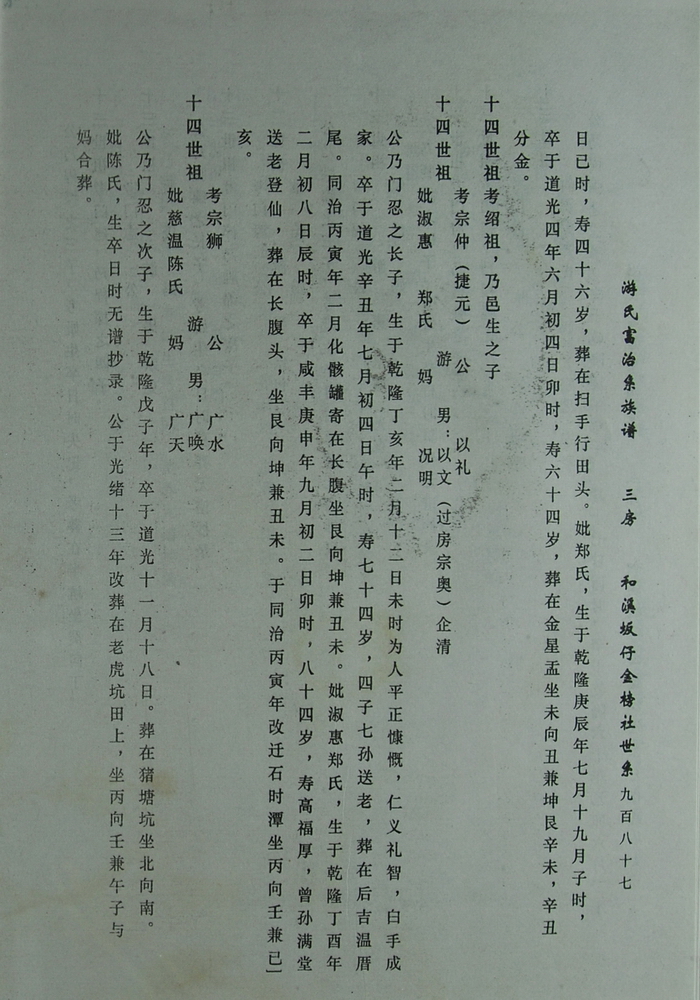 游氏富治系族谱 三房 和溪坂仔金榜社世系 九百八十七
日已时，寿四十六岁，葬在扫手行田头。妣郑氏，生于乾隆庚辰年七月十九月子时，
卒于道光四年六月初四日卯时，寿六十四岁，葬在金星盂坐未向丑兼坤艮辛未，辛丑
分金。
十四世祖考绍祖，乃邑生之子
十四世祖 考宗仲（捷元） 公 妣淑惠 郑氏 游 妈 男：以礼 以文（过房宗奥）企清 况明
公乃门忍之长子，生于乾隆丁亥年二月十二日未时为人平正慷慨，仁义礼智，白手成
家。卒于道光辛丑年七月初四日午时，寿七十四岁，四子七孙送老，葬在后吉温厝
尾。同治丙寅年二月化骸罐寄在长腹坐艮向坤兼丑未。妣淑惠郑氏，生于乾隆丁酉年
二月初八日辰时，卒于咸丰庚申年九月初二日卯时，八十四岁，寿高福厚，曾孙满堂
送老登仙，葬在长腹头，坐艮向坤兼丑未。于同治丙寅年改迁石时潭坐丙向壬兼已
亥。
十四世祖 考宗狮 公 妣慈温陈氏 游 妈 男：广水 广唤 广天
公乃门忍之次子，生于乾隆戊子年，卒于道光十一月十八日。葬在猪塘坑坐北向南。
妣陈氏，生卒日时无谱抄录。公于光绪十三年改葬在老虎坑田上，坐丙向壬兼午子与
妈合葬。